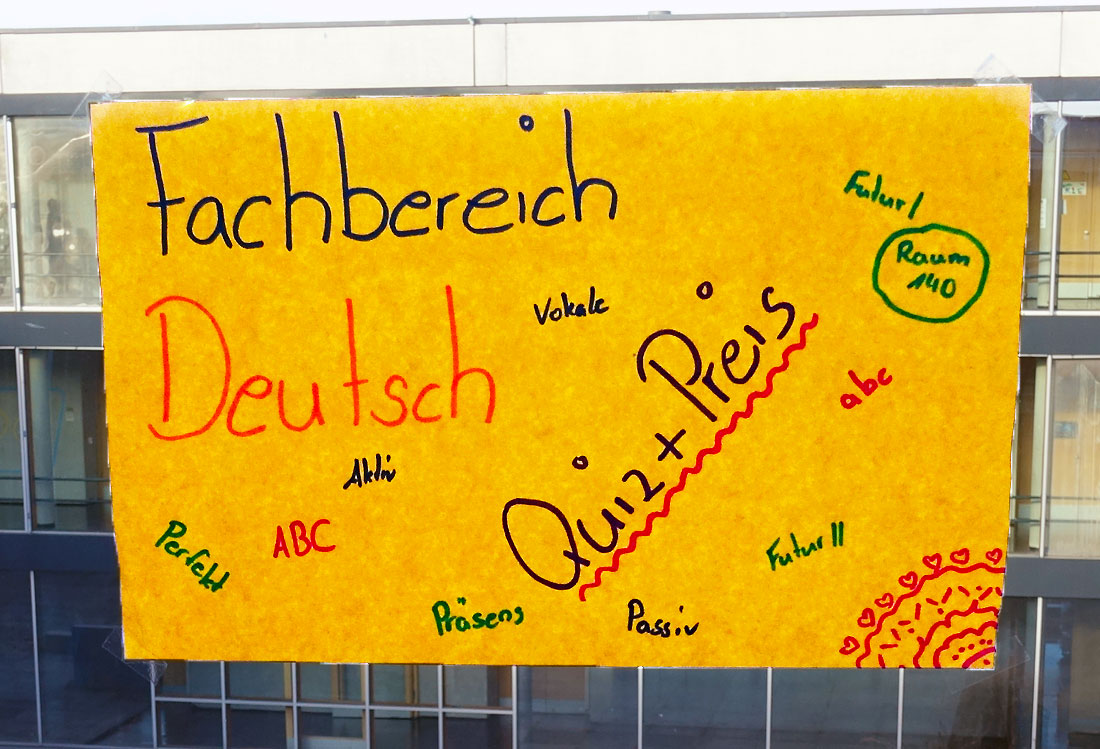 Fachbereich
Futur I
Raum
140
Deutsch
Vokale
Quiz + Preis
abc
Aktiv
Perfekt
ABC
Futur II
Präsens
Passiv